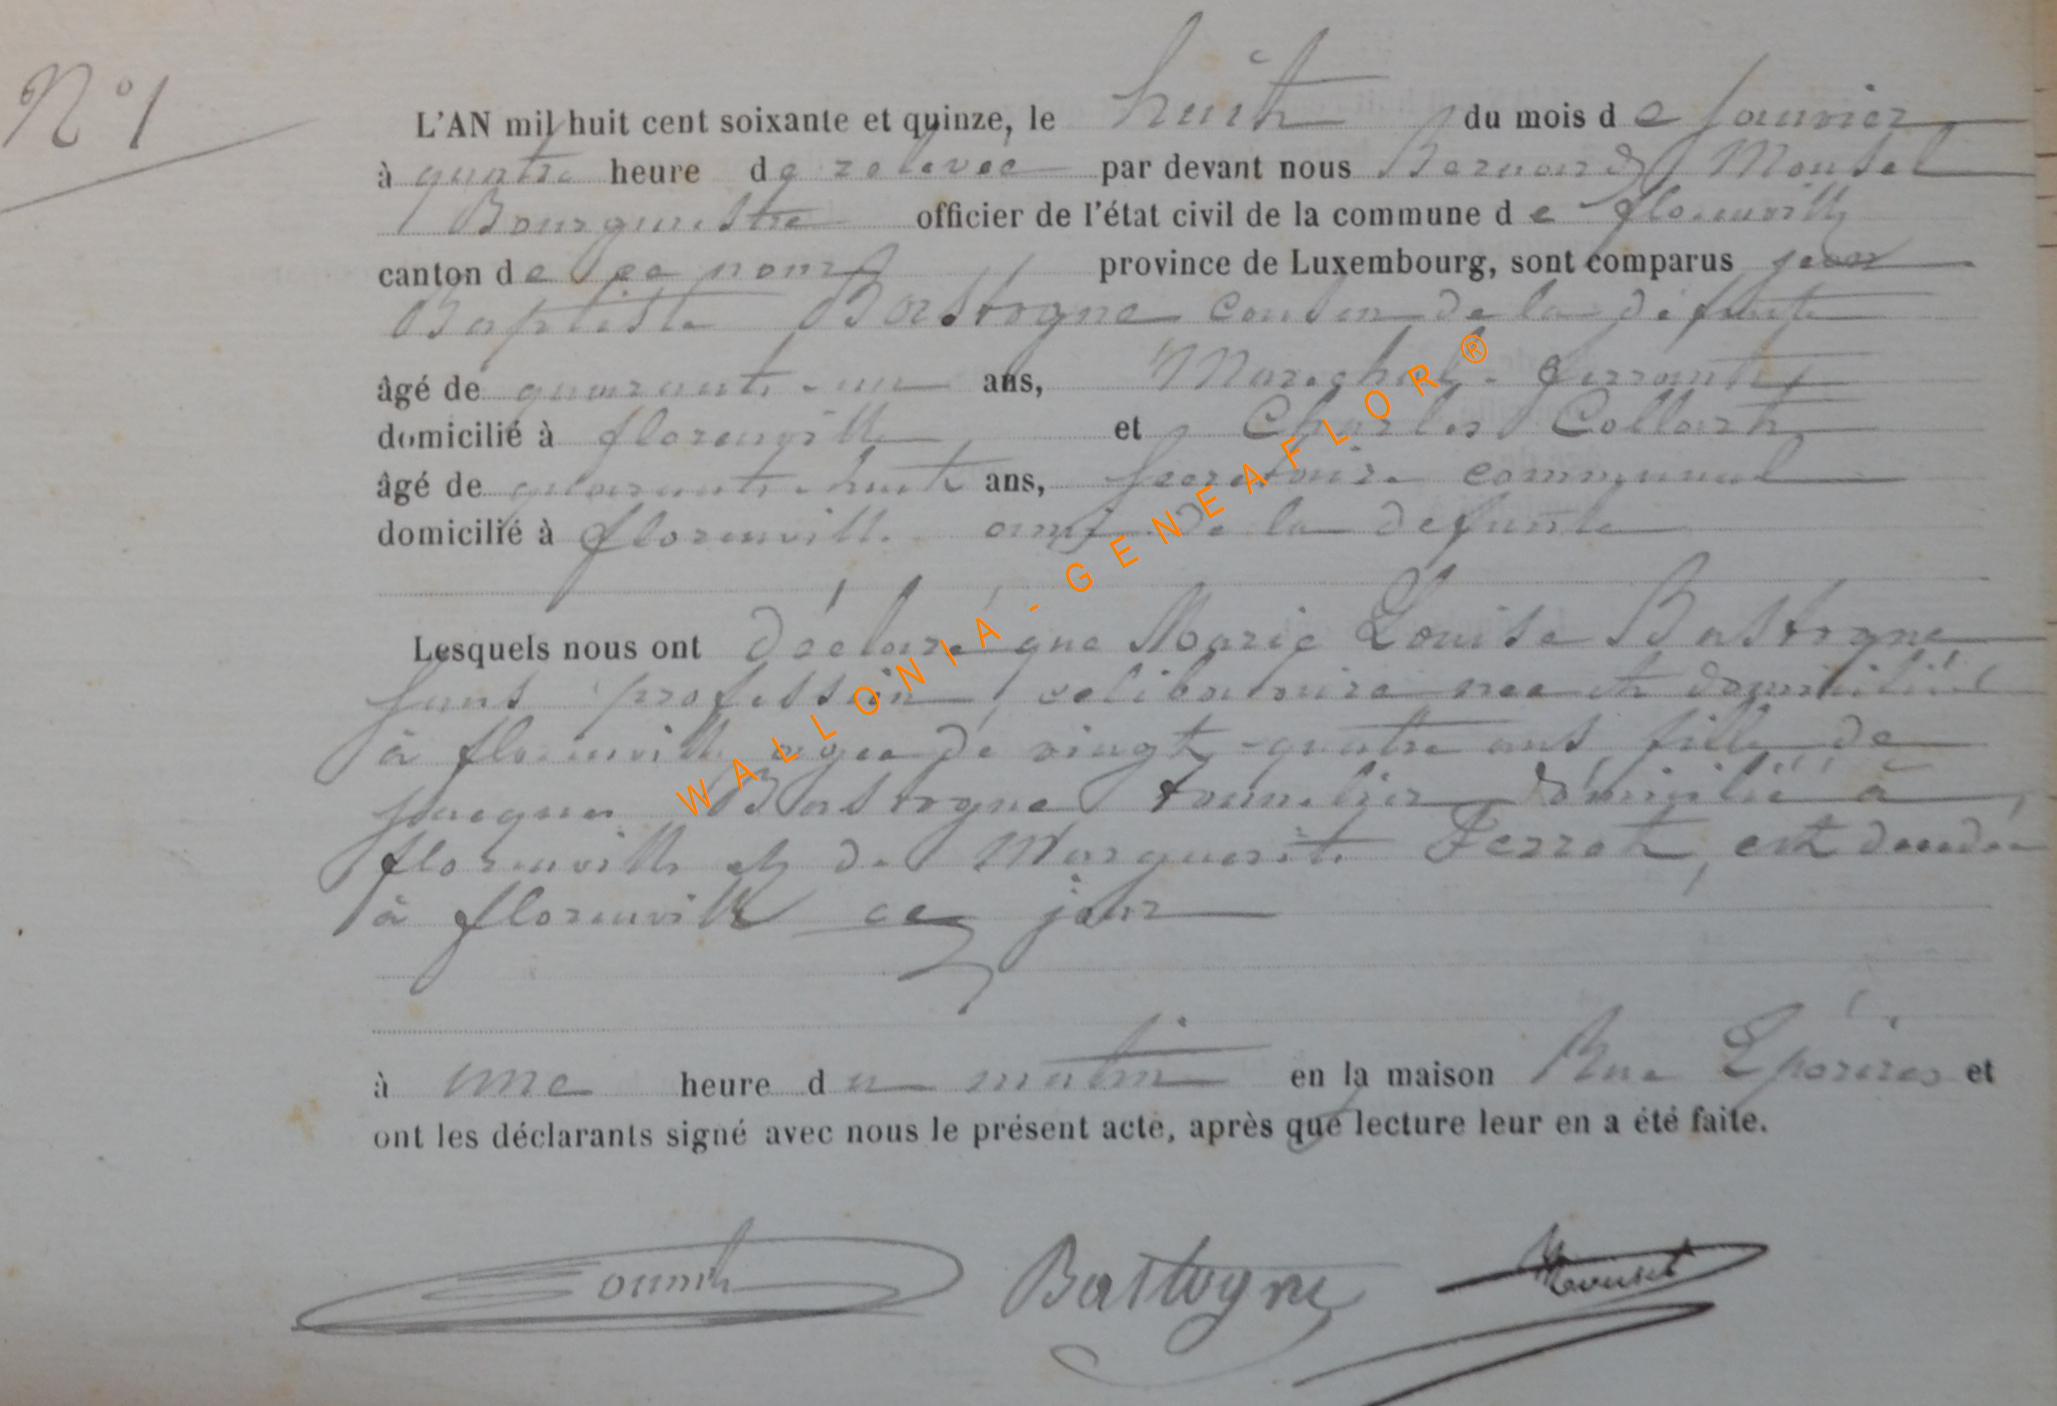 N° 1
L'AN mil huit cent soixante et quinze, le huit du mois de Janvier
à quatre heure de relevée par devant nous Bernard Mousel
Bourgmestre officier de l'état civil de la commune de florenville
canton de ce nom province de Luxembourg, sont comparus jean
Baptiste Bastogne cousin de la défunte
âgé de quarante-un ans, Maréchal-ferrant
domicilié à florenville et Charles Collart
âgé de quarante-huit ans, Secretaire communal
domicilié à florenville ami de la defunte
Lesquels nous ont déclaré que Marie Louise Bastogne
sans profession, celibataire née et domiciliée
à florenville agee de vingt-quatre ans, fille de
jacques Bastogne tonnelier domicilié à
florenville et de Marguerite Perrot, est décédée
à florenville ce jour
à une heure du matin en la maison Rue et
ont les déclarants signé avec nous le présent acte, après que lecture leur en a été faite.
Bastogne Mousel
WALLONIA-GENEAFLOR®